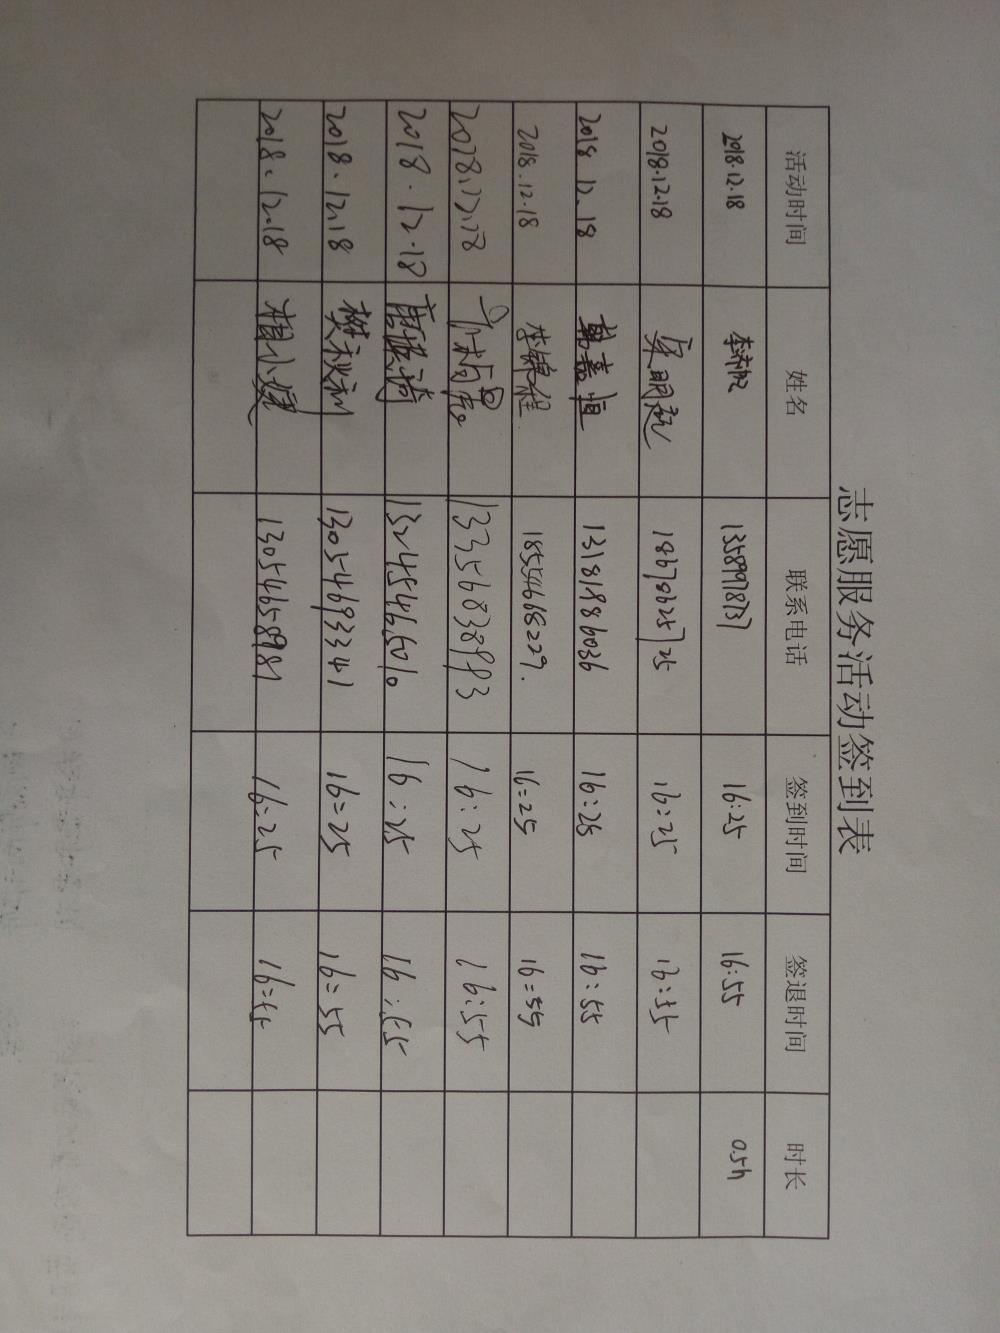 志愿服务活动签到表
活动时间 姓名 联系电话 签到时间 签退时间 时长
2018.12.18 13589978737 16:25 16:55 0.5h
2018.12.18 18678625725 16:25 16:55
2018.12.18 韩嘉恒 13181886036 16:25 16:55
2018.12.18 李锦程 18554668229. 16:25 16:55
2018.12.18 13356838983 16:25 16:55
2018.12.18 13245466501 16:25 16:55
2018.12.18 樊秋利 13054693341 16:25 16:55
2018.12.18 13054658981 16:25 16:55